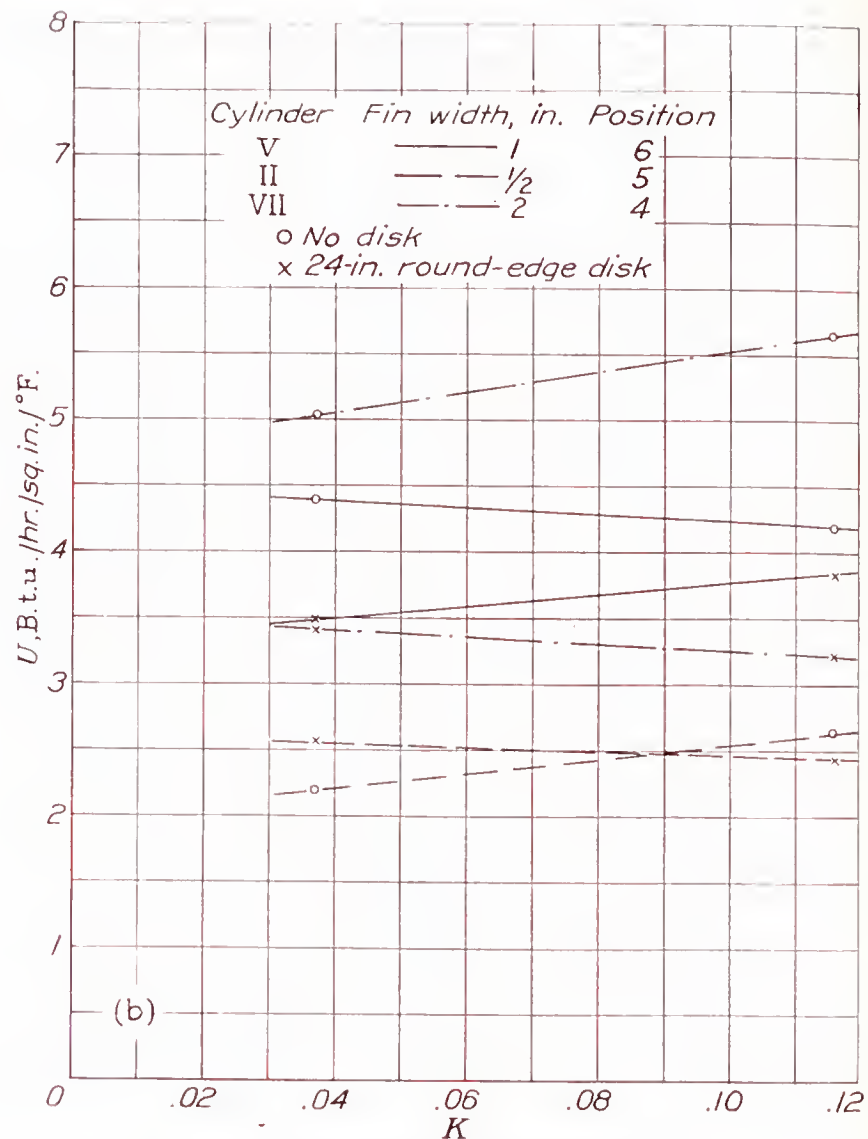 8
7
6
5
4
3
2
1
0
U, B.t.u./hr./sq. in./°F.
Cylinder Fin width, in. Position
V 1 6
II 1/2 5
VII 2 4
o No disk
x 24-in. round-edge disk
(b)
.02 .04 .06 .08 .10 .12
K